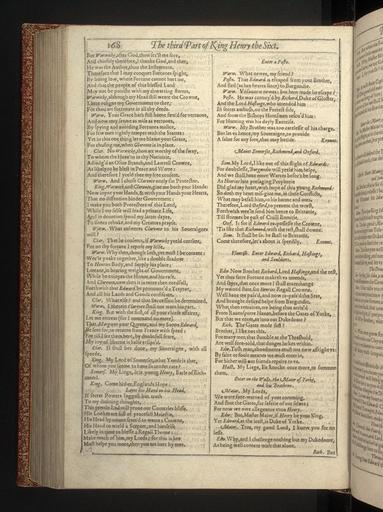 168 The third Part of King Henry the Sixt.
But Warwicke, after God, thou set'st me free,
And chiefely therefore, I thanke God, and thee,
He was the Author, thou the Instrument.
Therefore that I may conquer Fortunes spight,
By living low, where Fortune cannot hurt me,
And that the people of this blessed Land
May not be punisht with my thwarting starres,
Warwicke, although my Head still weare the Crowne,
I here resigne my Government to thee,
For thou art fortunate in all thy deeds.
Warw. Your Grace hath still beene fam'd for vertuous,
And now may seeme as wise as vertuous,
By spying and avoiding Fortunes malice,
For few men rightly temper with the Starres:
Yet in this one thing let me blame your Grace,
For chusing me, when Clarence is in place.
Clar. No Warwicke, thou art worthy of the sway,
To whom the Heav'ns in thy Nativitie,
Adiudg'd an Olive Branch, and Lawrell Crowne,
As likely to be blest in Peace and Warre:
And therefore I yeeld thee my free consent.
Warw. And I chuse Clarence onely for Protector.
King. Warwick and Clarence, give me both your Hands:
Now ioyne your Hands, & with your Hands your Hearts,
That no dissention hinder Government:
I make you both Protectors of this Land,
While I my selfe will lead a private Life,
And in devotion spend my latter dayes,
To sinnes rebuke, and my Creators prayse.
Warw. What answeres Clarence to his Soveraignes will?
Clar. That he consents, if Warwicke yeeld consent,
For on thy fortune I repose my selfe.
Warw. Why then, though loth, yet must I be content:
Wee'le yoake together, like a double shadow
To Henries Body, and supply his place;
I meane, in bearing weight of Government,
While he enioyes the Honor, and his ease.
And Clarence, now then it is more then needfull,
Forthwith that Edward be pronounc'd a Traytor,
And all his Lands and Goods confiscate.
Clar. What else? and that Succession be determined.
Warw. I, therein Clarence shall not want his part.
King. But with the first, of all your chiefe affaires,
Let me entreat (for I command no more)
That Margaret your Queene, and my Sonne Edward,
Be sent for, to returne from France with speed:
For till I see them here, by doubtfull feare,
My ioy of libertie is halfe eclips'd.
Clar. It shall bee done, my Soveraigne, with all speede.
King. My Lord of Somerset, what Youth is that,
Of whom you seeme to have so tender care?
Somers. My Liege, it is young Henry, Earle of Richmond.
King. Come hither, Englands Hope:
Layes his Hand on his Head.
If secret Powers suggest but truth
To my divining thoughts,
This prettie Lad will prove our Countries blisse.
His Lookes are full of peacefull Maiestie,
His Head by nature fram'd to weare a Crowne,
His Hand to wield a Scepter, and himselfe
Likely in time to blesse a Regall Throne:
Make much of him, my Lords; for this is hee
Must helpe you more, then you are hurt by mee.
Enter a Poste.
Warw. What newes, my friend?
Poste. That Edward is escaped from your Brother,
And fled (as hee heares since) to Burgundie.
Warw. Unsavorie newes: but how made he escape?
Poste. He was convey'd by Richard, Duke of Gloster,
And the Lord Hastings, who attended him
In secret ambush, on the Forrest side,
And from the Bishops Huntsmen rescu'd him:
For Hunting was his dayly Exercise.
Warw. My Brother was too carelesse of his charge.
But let us hence, my Soveraigne, to provide
A salve for any sore, that may betide. Exeunt.
Manet Somerset, Richmond, and Oxford.
Som. My Lord, I like not of this flight of Edwards:
For doubtlesse, Burgundie will yeeld him helpe,
And we shall have more Warres befor't be long.
As Henries late presaging Prophecie
Did glad my heart, with hope of this young Richmond:
So doth my heart mis-give me, in these Conflicts,
What may befall him, to his harme and ours.
Therefore, Lord Oxford, to prevent the worst,
Forthwith wee'le send him hence to Brittanie,
Till stormes be past of Civill Enmitie.
Oxf. I: for if Edward re-possesse the Crowne,
'Tis like that Richmond, with the rest, shall downe.
Som. It shall be so: he shall to Brittanie.
Come therefore, let's about it speedily. Exeunt.
Flourish. Enter Edward, Richard, Hastings,
and Souldiers.
Edw. Now Brother Richard, Lord Hastings, and the rest,
Yet thus farre Fortune maketh us amends,
And sayes, that once more I shall enterchange
My wained state, for Henries Regall Crowne.
Well have we pass'd, and now re-pass'd the Seas,
And brought desired helpe from Burgundie.
What then remaines, we being thus arriv'd
From Ravenspurre Haven, before the Gates of Yorke,
But that we enter, as into our Dukedome?
Rich. The Gates made fast?
Brother, I like not this.
For many men that stumble at the Threshold,
Are well fore-told, that danger lurkes within.
Edw. Tush man, aboadments must not now affright us:
By faire or foule meanes we must enter in,
For hither will our friends repaire to us.
Hast. My Liege, Ile knocke once more, to summon them.
Enter on the Walls, the Maior of Yorke,
and his Brethren.
Maior. My Lords,
We were fore-warned of your comming,
And shut the Gates, for safetie of our selves;
For now we owe allegeance unto Henry.
Edw. But, Master Maior, if Henry be your King,
Yet Edward, at the least, is Duke of Yorke.
Maior. True, my good Lord, I know you for no lesse.
Edw. Why, and I challenge nothing but my Dukedome,
As being well content with that alone.
Rich. But